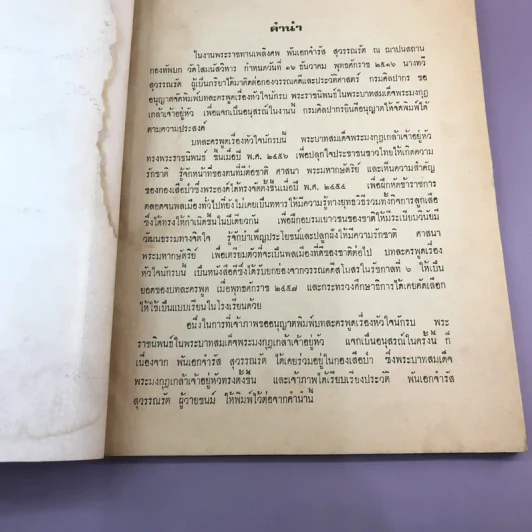 คำนำ
ในงานพระราชทานเพลิงศพ พันเอกจำรัส สุวรรณรัต ณ ฌาปนสถาน
กองทัพบก วัดโสมนัสวิหาร กำหนดวันที่ ๑๖ ธันวาคม พุทธศักราช ๒๕๑๖ นางทวี
สุวรรณรัต ผู้เป็นภริยาได้มาติดต่อกองวรรณคดีและประวัติศาสตร์ กรมศิลปากร ขอ
อนุญาตจัดพิมพ์บทละครพูดเรื่องหัวใจนักรบ พระราชนิพนธ์ในพระบาทสมเด็จพระมงกุฎ
เกล้าเจ้าอยู่หัว เพื่อแจกเป็นอนุสรณ์ในงานนี้ กรมศิลปากรยินดีอนุญาตให้จัดพิมพ์ได้
ตามความประสงค์
บทละครพูดเรื่องหัวใจนักรบนี้ พระบาทสมเด็จพระมงกุฎเกล้าเจ้าอยู่หัว
ทรงพระราชนิพนธ์ ขึ้นเมื่อปี พ.ศ. ๒๔๕๖ เพื่อปลุกใจประชาชนชาวไทยให้เกิดความ
รักชาติ รู้จักหน้าที่ของตนที่มีต่อชาติ ศาสนา พระมหากษัตริย์ และเห็นความสำคัญ
ของกองเสือป่าซึ่งพระองค์ได้ทรงจัดตั้งขึ้นเมื่อปี พ.ศ. ๒๔๕๔ เพื่อฝึกหัดข้าราชการ
ตลอดจนพลเมืองทั่วไปที่ยังไม่เคยเป็นทหารให้มีความรู้ทางยุทธวิธีรวมทั้งกิจการลูกเสือ
ซึ่งได้ทรงให้กำเนิดขึ้นในปีเดียวกัน เพื่อฝึกอบรมเยาวชนของชาติให้มีระเบียบวินัยมี
วัฒนธรรมทางจิตใจ รู้จักบำเพ็ญประโยชน์และปลูกฝังให้มีความรักชาติ ศาสนา
พระมหากษัตริย์ เพื่อเตรียมตัวที่จะเป็นพลเมืองที่ดีของชาติต่อไป บทละครพูดเรื่อง
หัวใจนักรบนี้ เป็นหนังสือซึ่งได้รับยกย่องจากวรรณคดีสโมสรในรัชกาลที่ ๖ ให้เป็น
ยอดของบทละครพูด เมื่อพุทธศักราช ๒๔๕๗ และกระทรวงศึกษาธิการได้เคยคัดเลือก
ให้ใช้เป็นแบบเรียนในโรงเรียนด้วย
อนึ่งในการที่เจ้าภาพขออนุญาตพิมพ์บทละครพูดเรื่องหัวใจนักรบ พระ
ราชนิพนธ์ในพระบาทสมเด็จพระมงกุฎเกล้าเจ้าอยู่หัว แจกเป็นอนุสรณ์ในครั้งนี้ ก็
เนื่องจาก พันเอกจำรัส สุวรรณรัต ได้เคยร่วมอยู่ในกองเสือป่า ซึ่งพระบาทสมเด็จ
พระมงกุฎเกล้าเจ้าอยู่หัวทรงตั้งขึ้น และเจ้าภาพได้เรียบเรียงประวัติ พันเอกจำรัส
สุวรรณรัต ผู้วายชนม์ ให้พิมพ์ไว้ต่อจากคำนำนี้